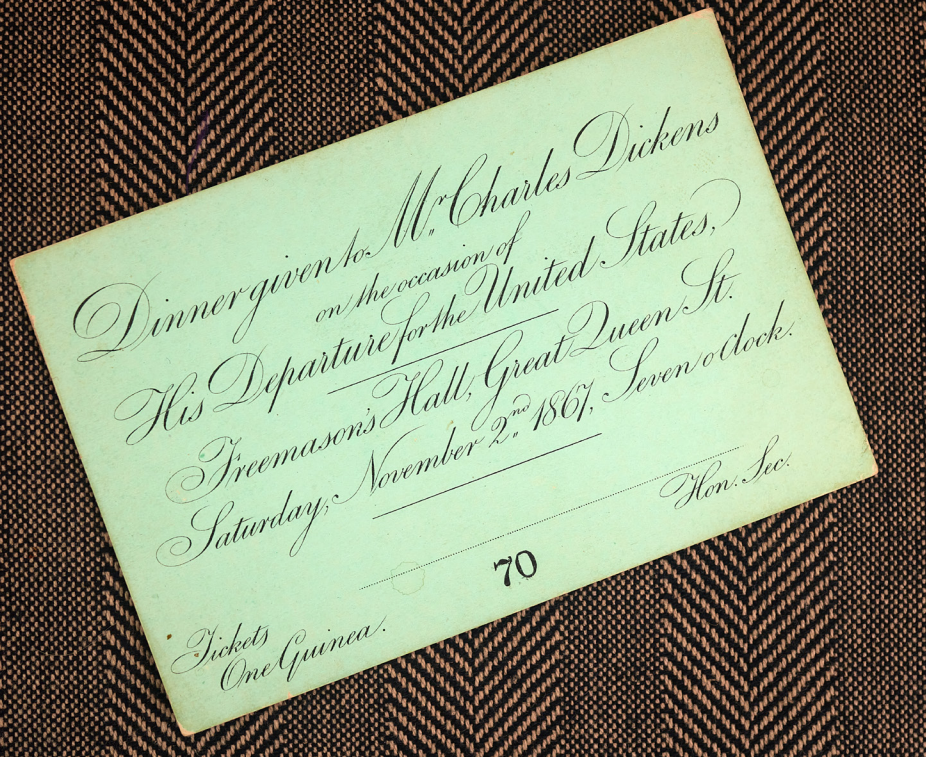 Dinner given to Mr. Charles Dickens
on the occasion of
His Departure for the United States,
Freemason's Hall, Great Queen St.
Saturday, November 2nd 1867, Seven o'Clock.
Hon. Sec.
70
Tickets
One Guinea.